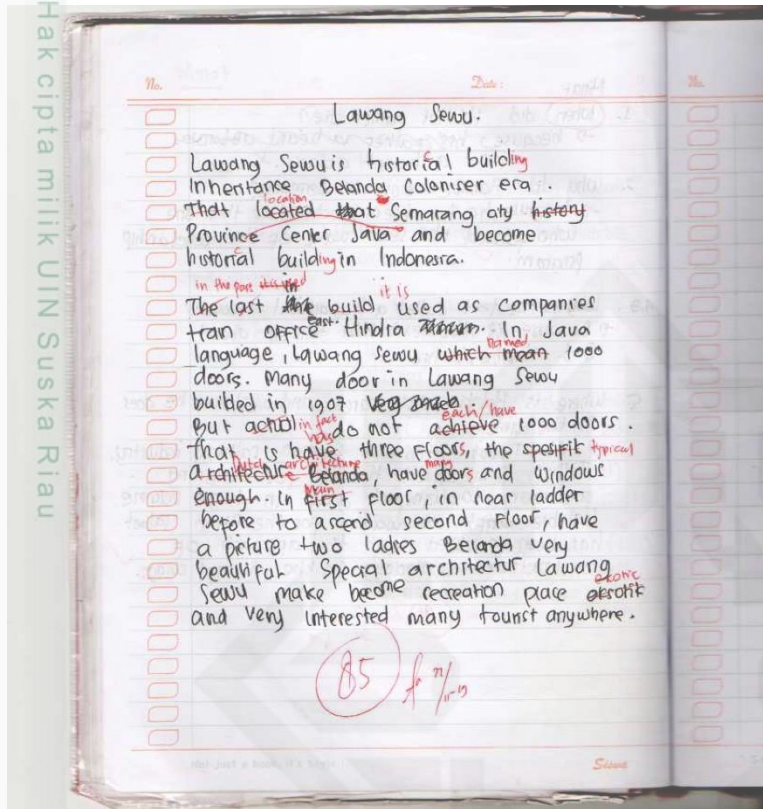 Hak cipta milik UIN Suska Riau
No. Date: No.
Lawang Sewu.
Lawang Sewu is historical building
Inheritance Belanda Coloniser era.
location
That located that Semarang city history
Province Center Java and become
historical building in Indonesia.
in the past it is used in it is
The last the build used as companies
train office East Hindra In Java
named
language, Lawang Sewu which mean 1000
doors. Many door in Lawang Sewu
builded in 1907
in fact each/have
But do not achieve 1000 doors.
has
That is have three floors, the spesifik typical
Dutch architecture many
architecture Belanda, have doors and windows
main
enough. In first floor, in near ladder
before to ascend second floor, have
a picture two ladies Belanda very
beautiful. Special architectur Lawang
exotic
Sewu make become recreation place eksotik
and very interested many tourist anywhere.
85